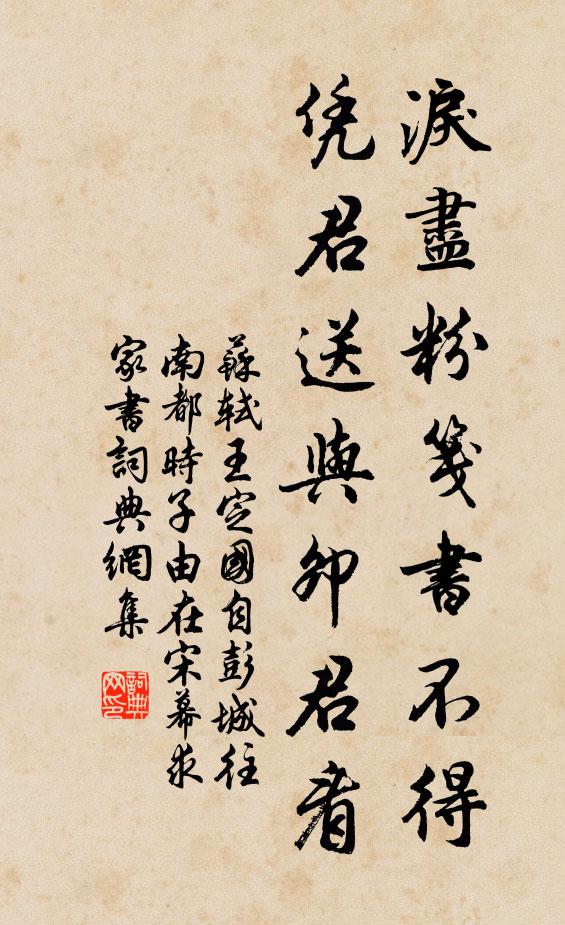 淚盡粉箋書不得
凭君送與卯君看
蘇軾王定國自彭城往
南都時子由在宋幕求
家書詞典網集
詞典网印